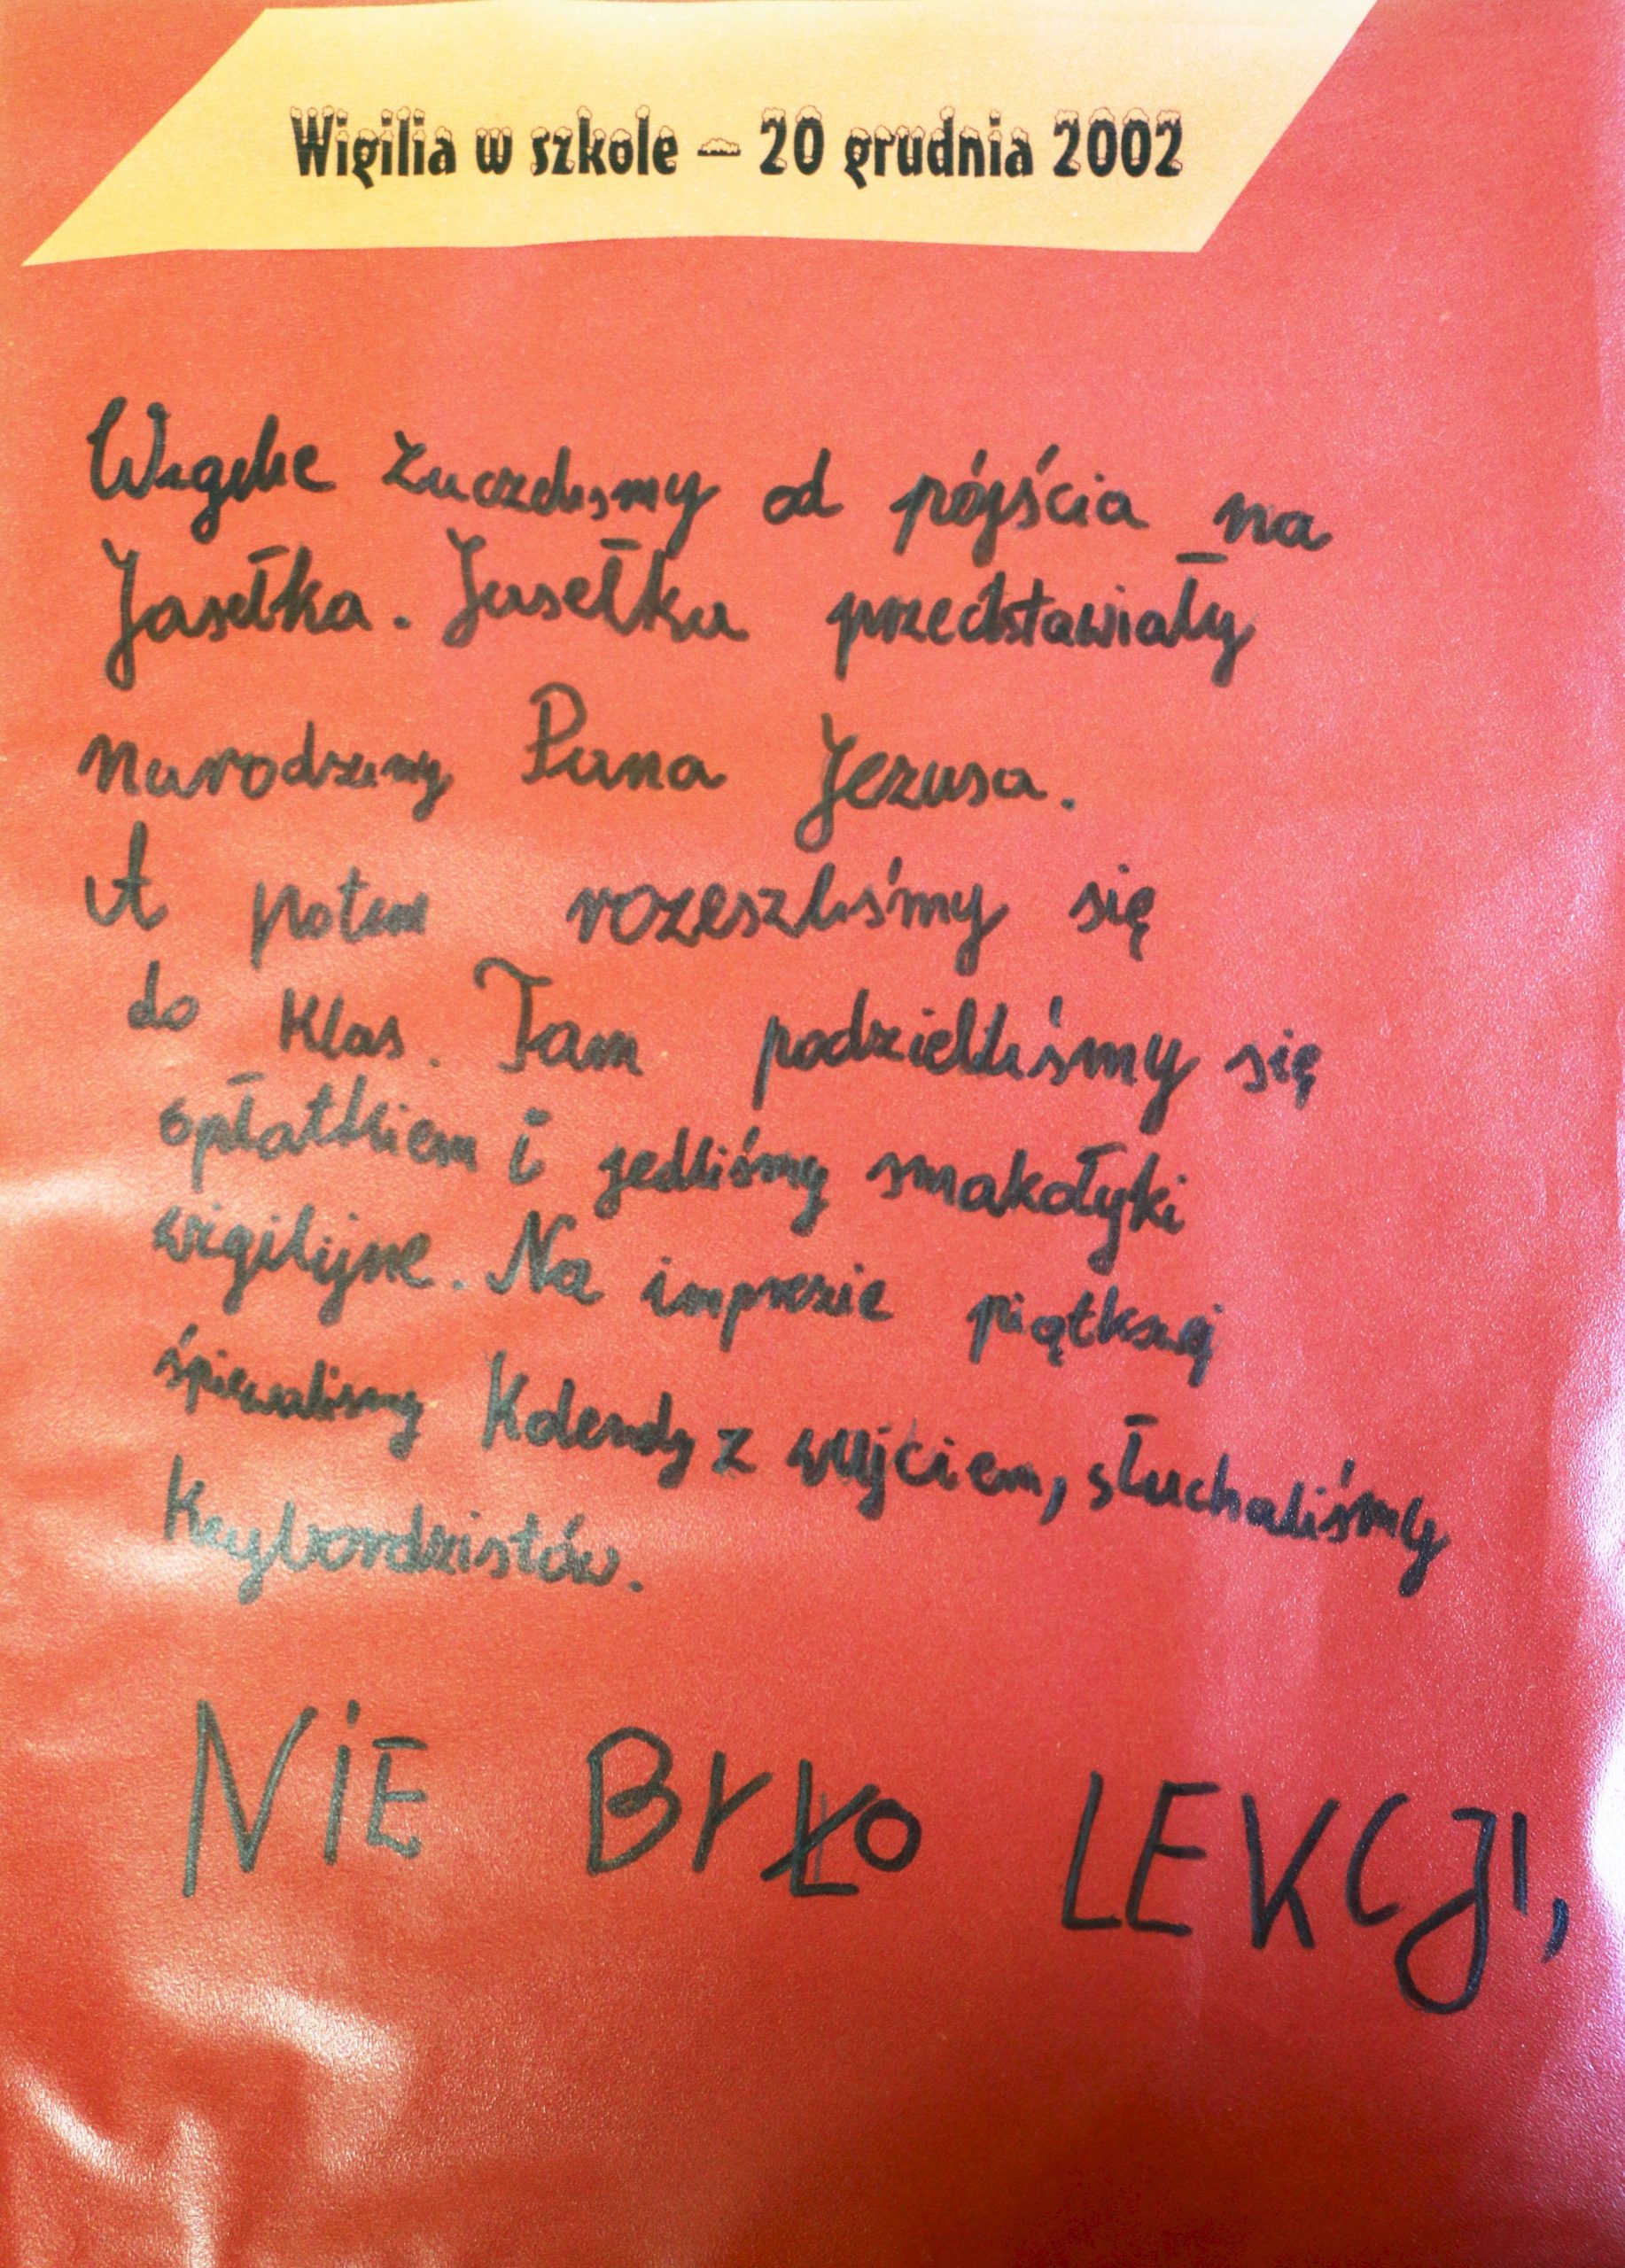 Wigilia w szkole – 20 grudnia 2002
Wigilie zaczelismy od pójścia na
Jasełka. Jasełka przedstawiały
narodziny Pana Jezusa.
A potem rozeszliśmy się
do klas. Tam podzieliliśmy się
opłatkiem i jedliśmy smakołyki
wigilijne. Na imprezie piątkowej
śpiewalismy Kolendy z wujciem, słuchaliśmy
Keybordzistów.
NIE BYŁO LEKCJI,